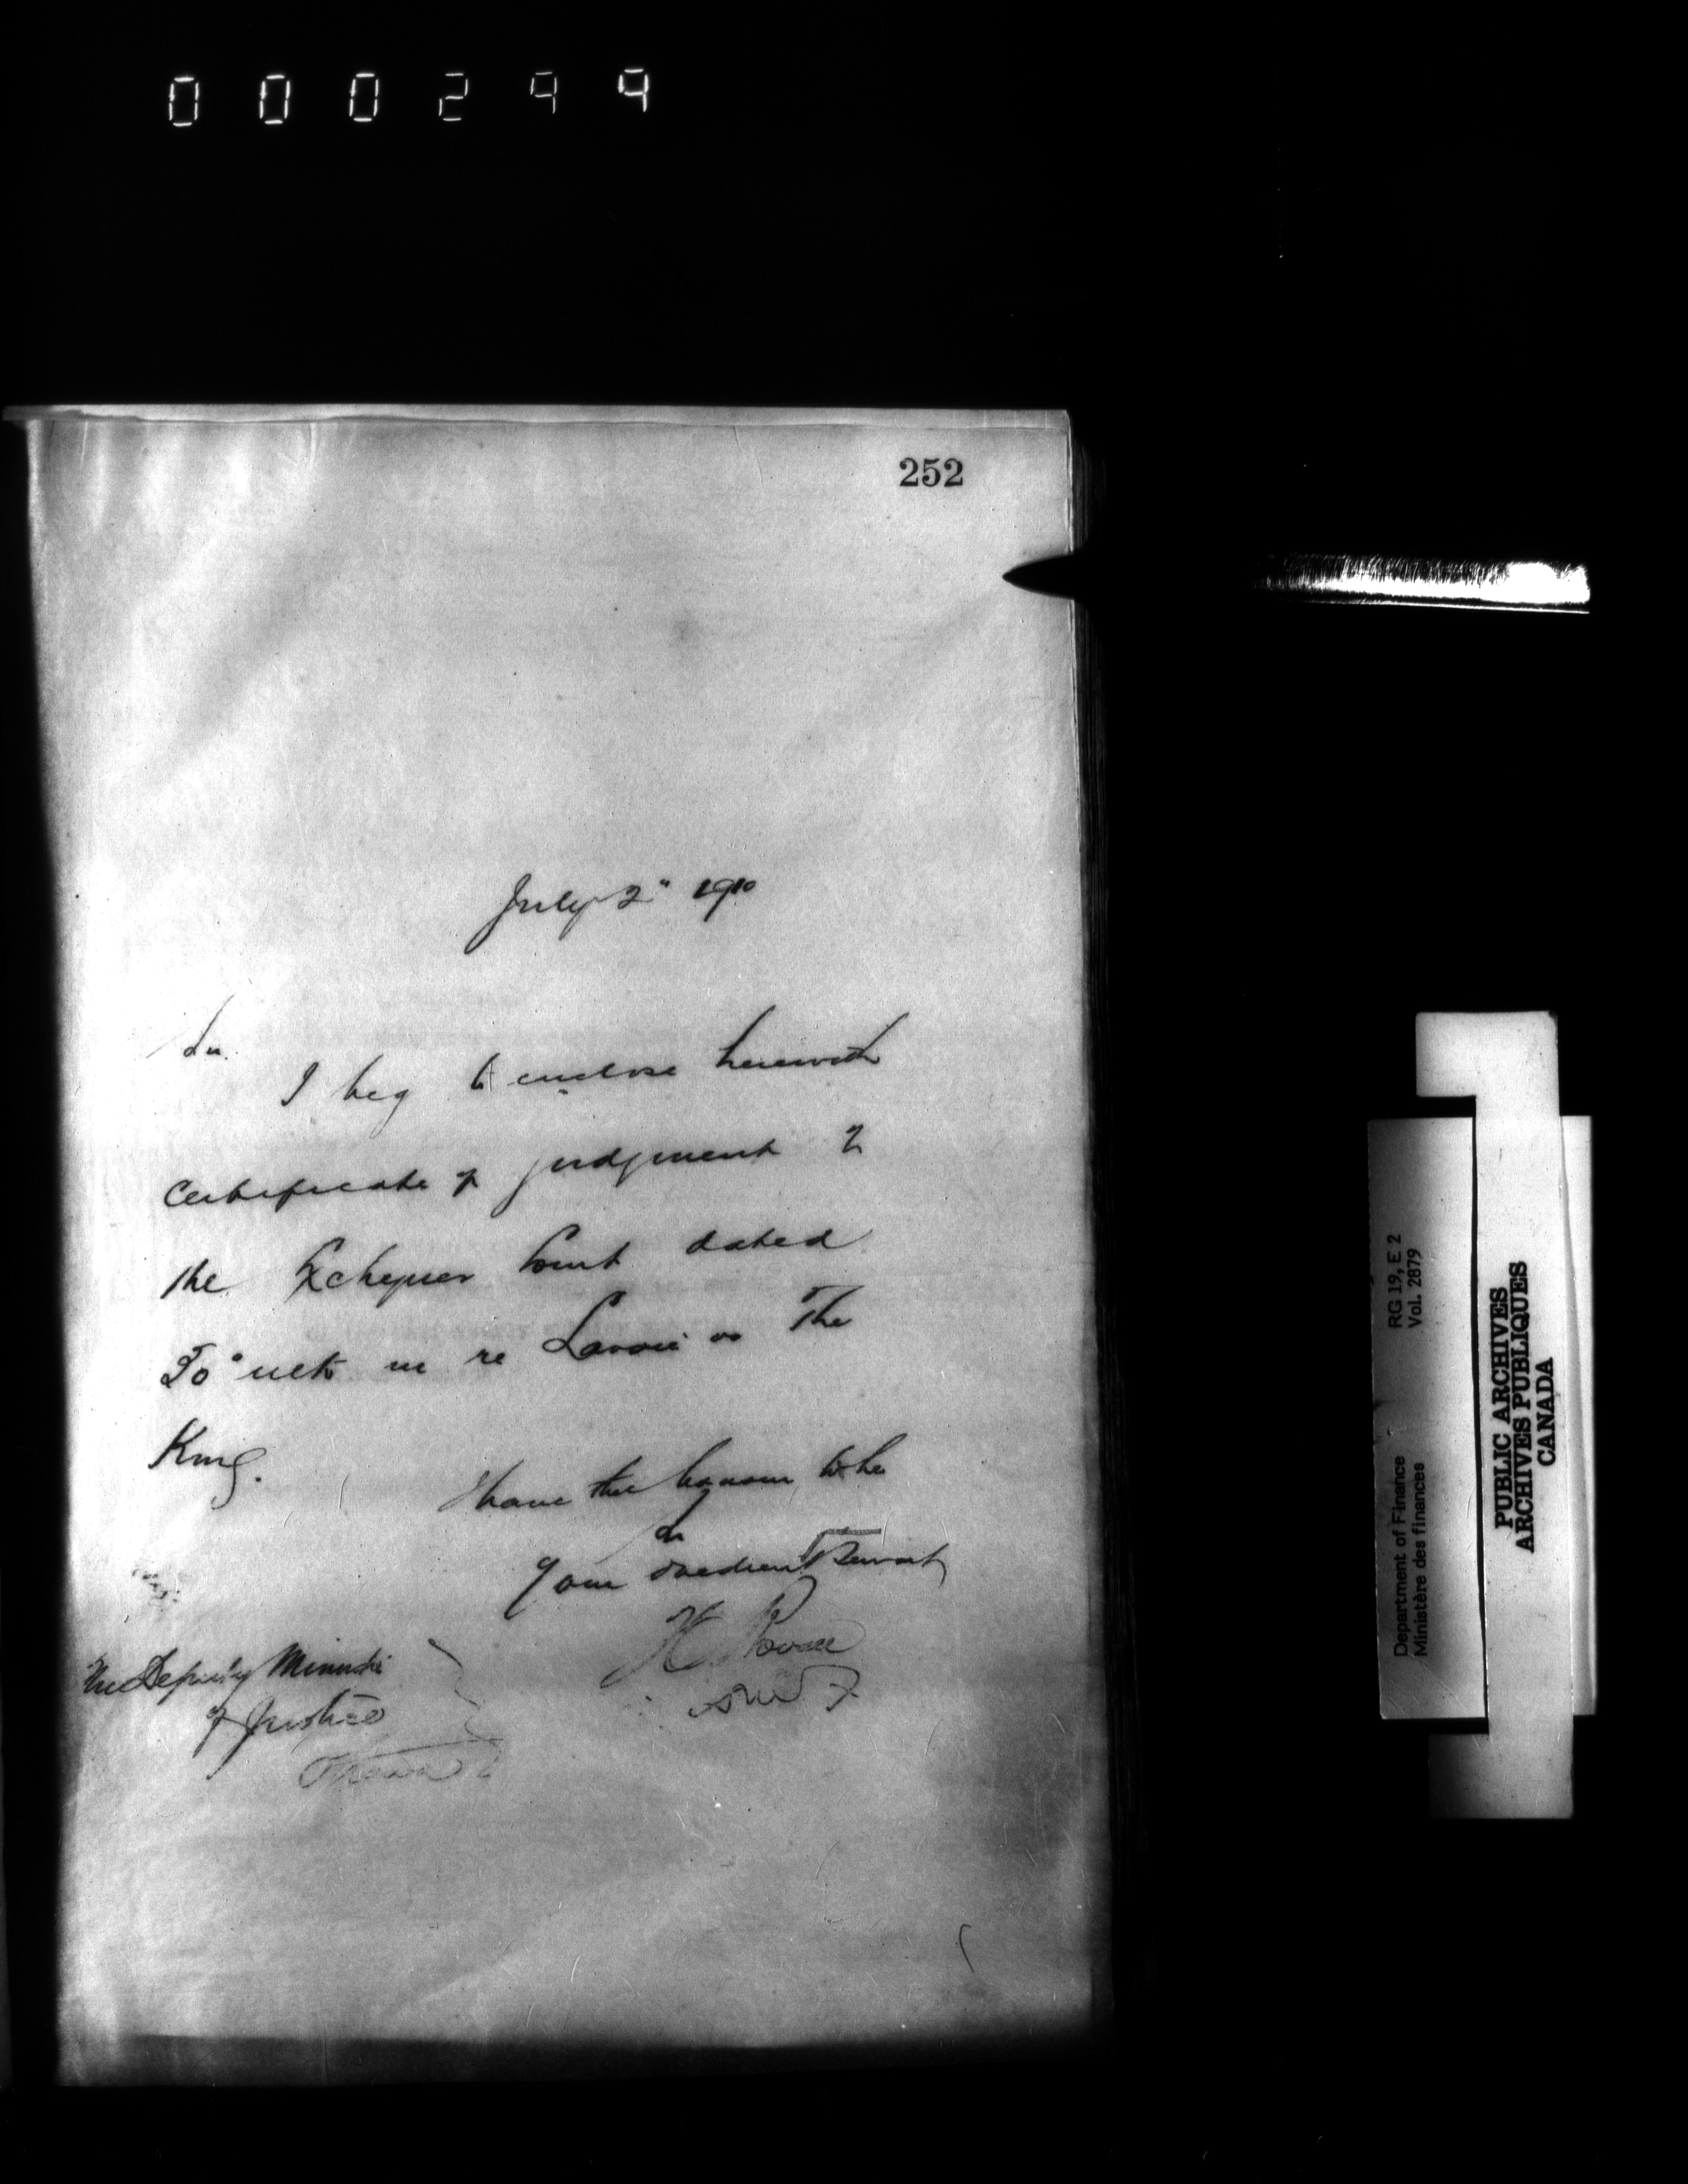 000299
252
July 2" 1910
Sir.
I beg to enclose herewith
Certificate of judgment of
the Exchequer Court dated
30" ulto in re Lavoie vs The
King.
I have the honour to be
Sir
Your obedient Servant
The Deputy Minister
of Justice
Ottawa
RG 19, E 2
Vol. 2879
Department of Finance
Ministère des finances
PUBLIC ARCHIVES
ARCHIVES PUBLIQUES
CANADA